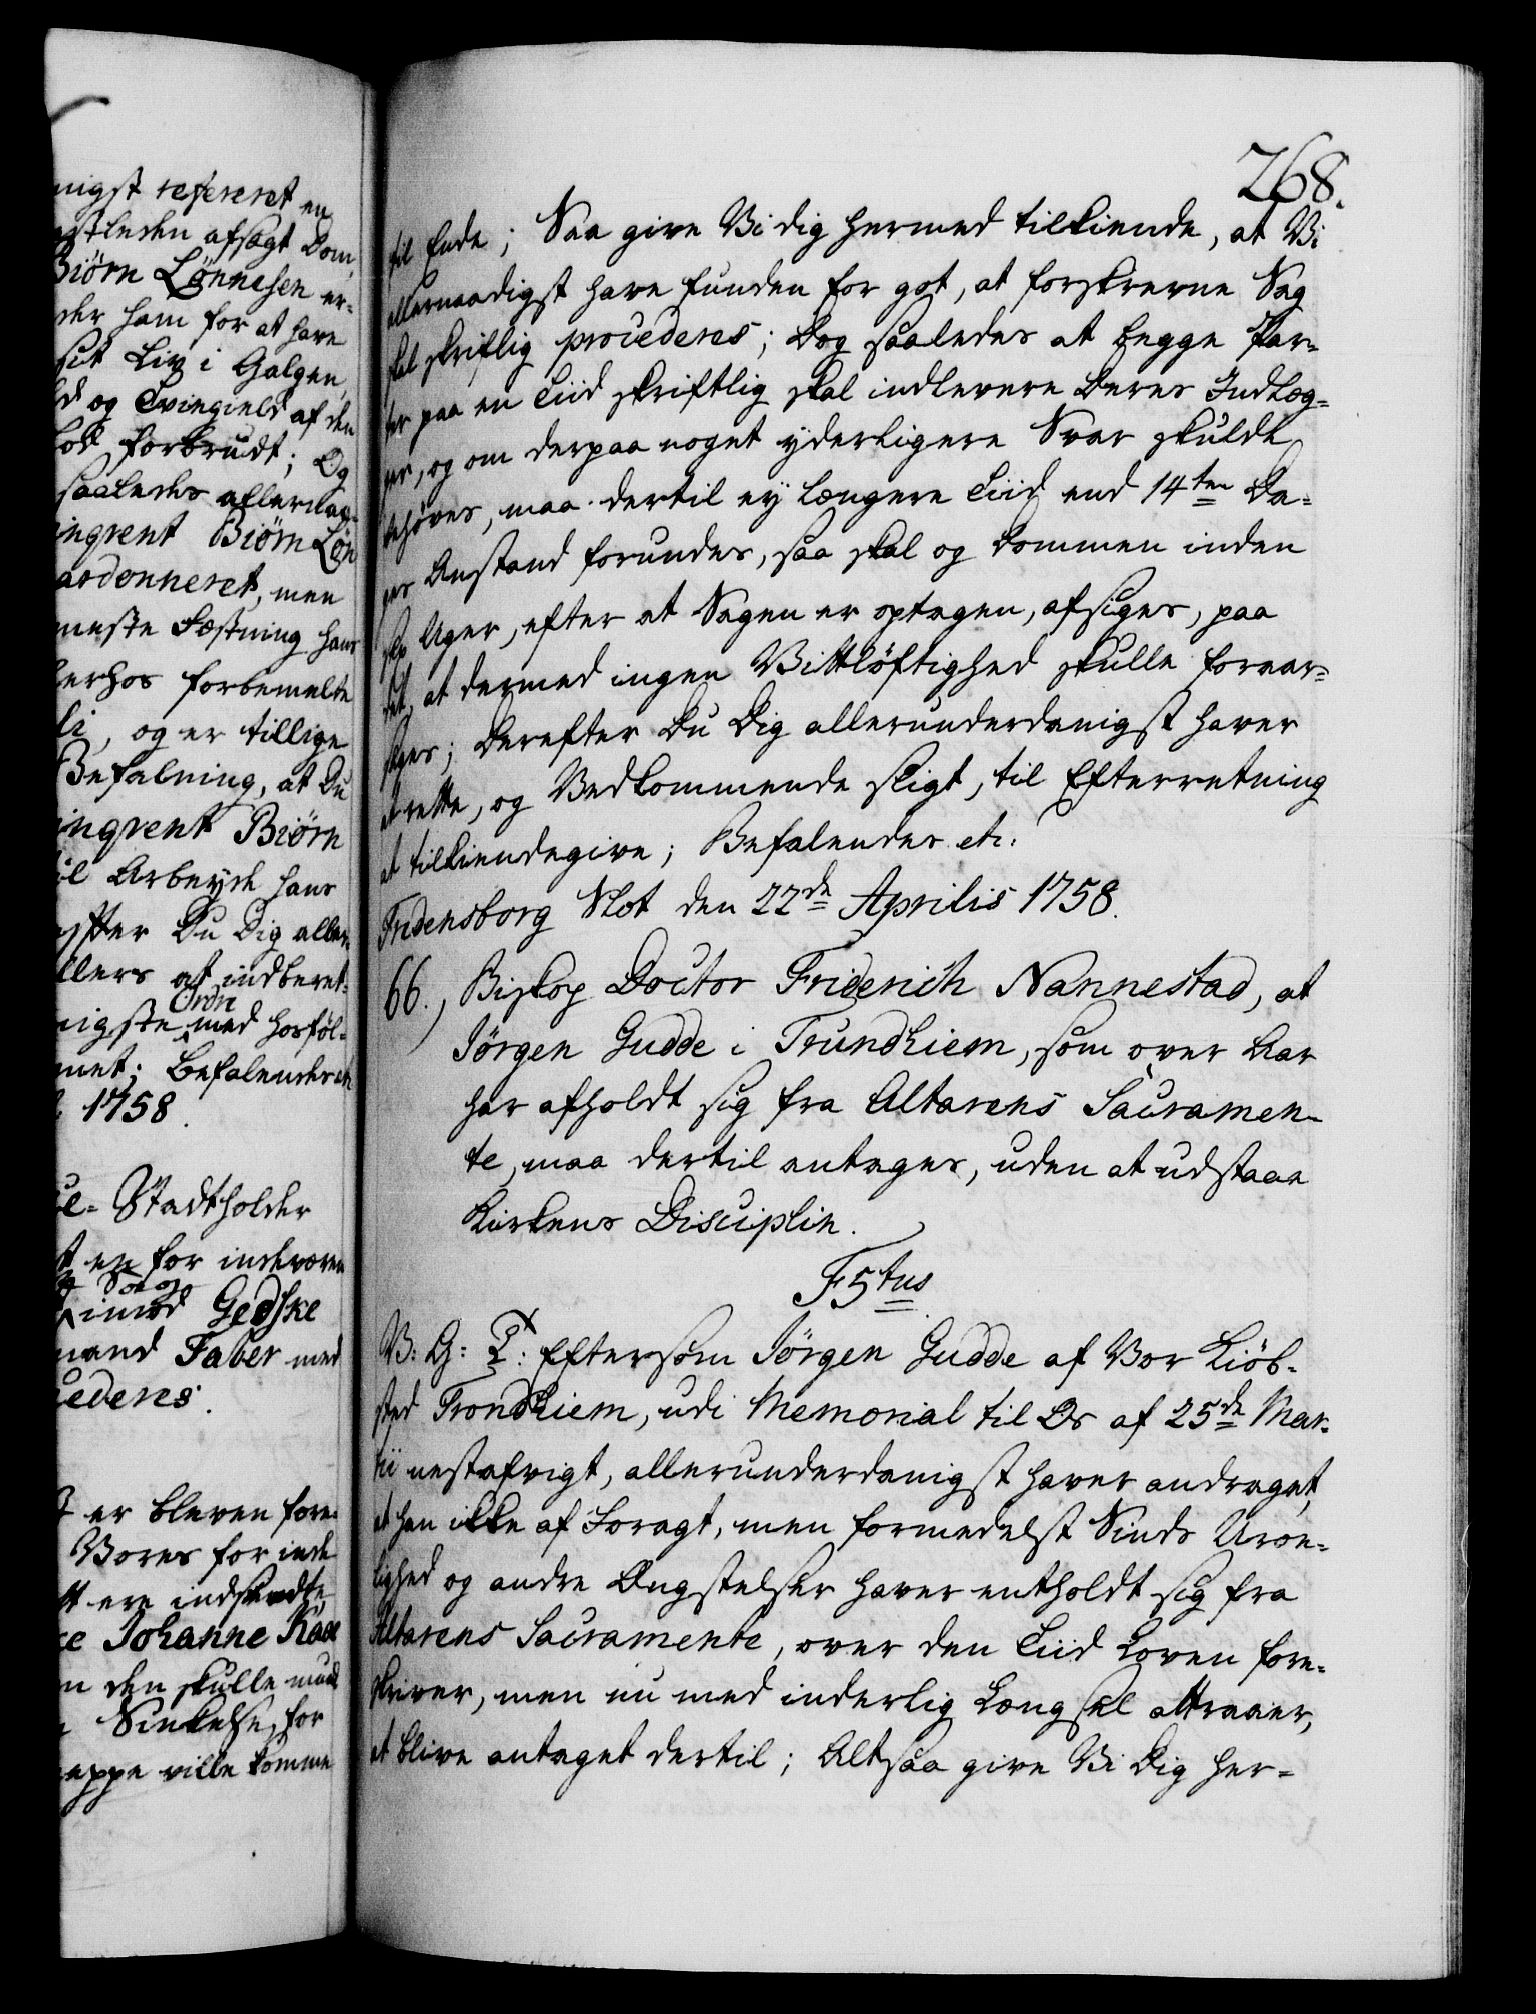 nigst refereret en
afsagt Dom,
Biørn Lønnesen er-
der ham for at have
sit Liv i Galgen,
og Tvingield af den
forbrudt; Og
saaledes allernaa-
Biørn Løn
pardonneret, men
neste Fæstning hans
derhos forbemelte
li, og er tillige
Befalning, at Du
Biørn
til Arbeyde hans
effter Du Dig aller-
ellers at indberet-
nigste Ordre med hosføl-
Befalendes etc
1758.
Stadtholder
for indeværen
Sag
imod Gedske
mand Faber med
cederes.
er bleven fore-
Vores for inde
ere indsendte
Johanne Raae
den skulle
for
ville komme
268.
til Ende; Saa give Vi dig hermed tilkiende, at Vi
allernaadigst have funden for got, at forskrevne Sag
skal skriftlig procederes; Dog saaledes at begge Par-
ter paa en Tiid skriftlig skal indlevere Deres Indlæg-
ger, og om derpaa noget yderligere Svar skulde
behøves, maa dertil ey længere Tiid end 14ten Da-
ges Anstand forundes, saa skal og Dommen inden
sex Uger, efter at Sagen er optagen, afsiges, paa
det, at dermed ingen Vittløftighed skulle foraar-
sages; Derefter Du Dig allerunderdanigst haver
at rette, og Vedkommende sligt, til Efterretning
at tilkiendegive; Befalendes etc.
Fridensborg Slot den 22de Aprilis 1758.
66., Biskop Doctor Friderich Nannestad, at
Jørgen Gudde i Trundhiem, som over Aar
har afholdt sig fra Altarens Sacramen-
te, maa dertil antages, uden at udstaae
Kirkens Disciplin.
F5tus
V: G: T: Eftersom Jørgen Gudde af Vor Kiøb-
sted Trondhiem, udi Memorial til Os af 25de Mar-
tii nestafvigt, allerunderdanigst haver andraget,
at han ikke af Foragt, men formedelst Sinds Uroe-
lighed og andre Ængstelser haver entholdt sig fra
Altarens Sacramente, over den Tiid Loven fore-
skriver, men nu med inderlig Længsel attraaer,
at blive antaget dertil; Altsaa give Vi Dig her-